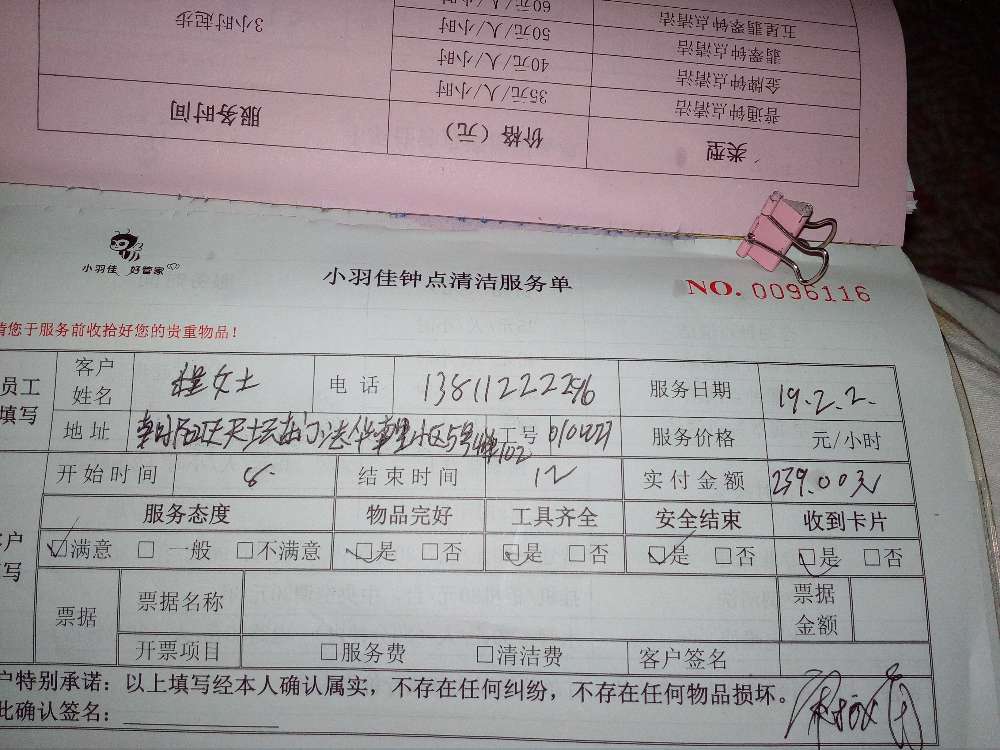 类型 价格（元） 服务时间
普通钟点清洁 35元/人/小时 3小时起步
金牌钟点清洁 40元/人/小时
翡翠钟点清洁 50元/人/小时
五星翡翠钟点清洁 60元/人/小时
小羽佳 好管家
小羽佳钟点清洁服务单
NO. 0096116
请您于服务前收拾好您的贵重物品！
员工填写
客户姓名 程女士 电话 13811222296 服务日期 19.2.2.
地址 工号 010427 服务价格 元/小时
开始时间 8. 结束时间 12 实付金额 239.00元
服务态度 物品完好 工具齐全 安全结束 收到卡片
☑满意 □一般 □不满意 ☑是 □否 ☑是 □否 ☑是 □否 ☑是 □否
票据 票据名称 票据金额
开票项目 □服务费 □清洁费 客户签名
户特别承诺：以上填写经本人确认属实，不存在任何纠纷，不存在任何物品损坏。
此确认签名：